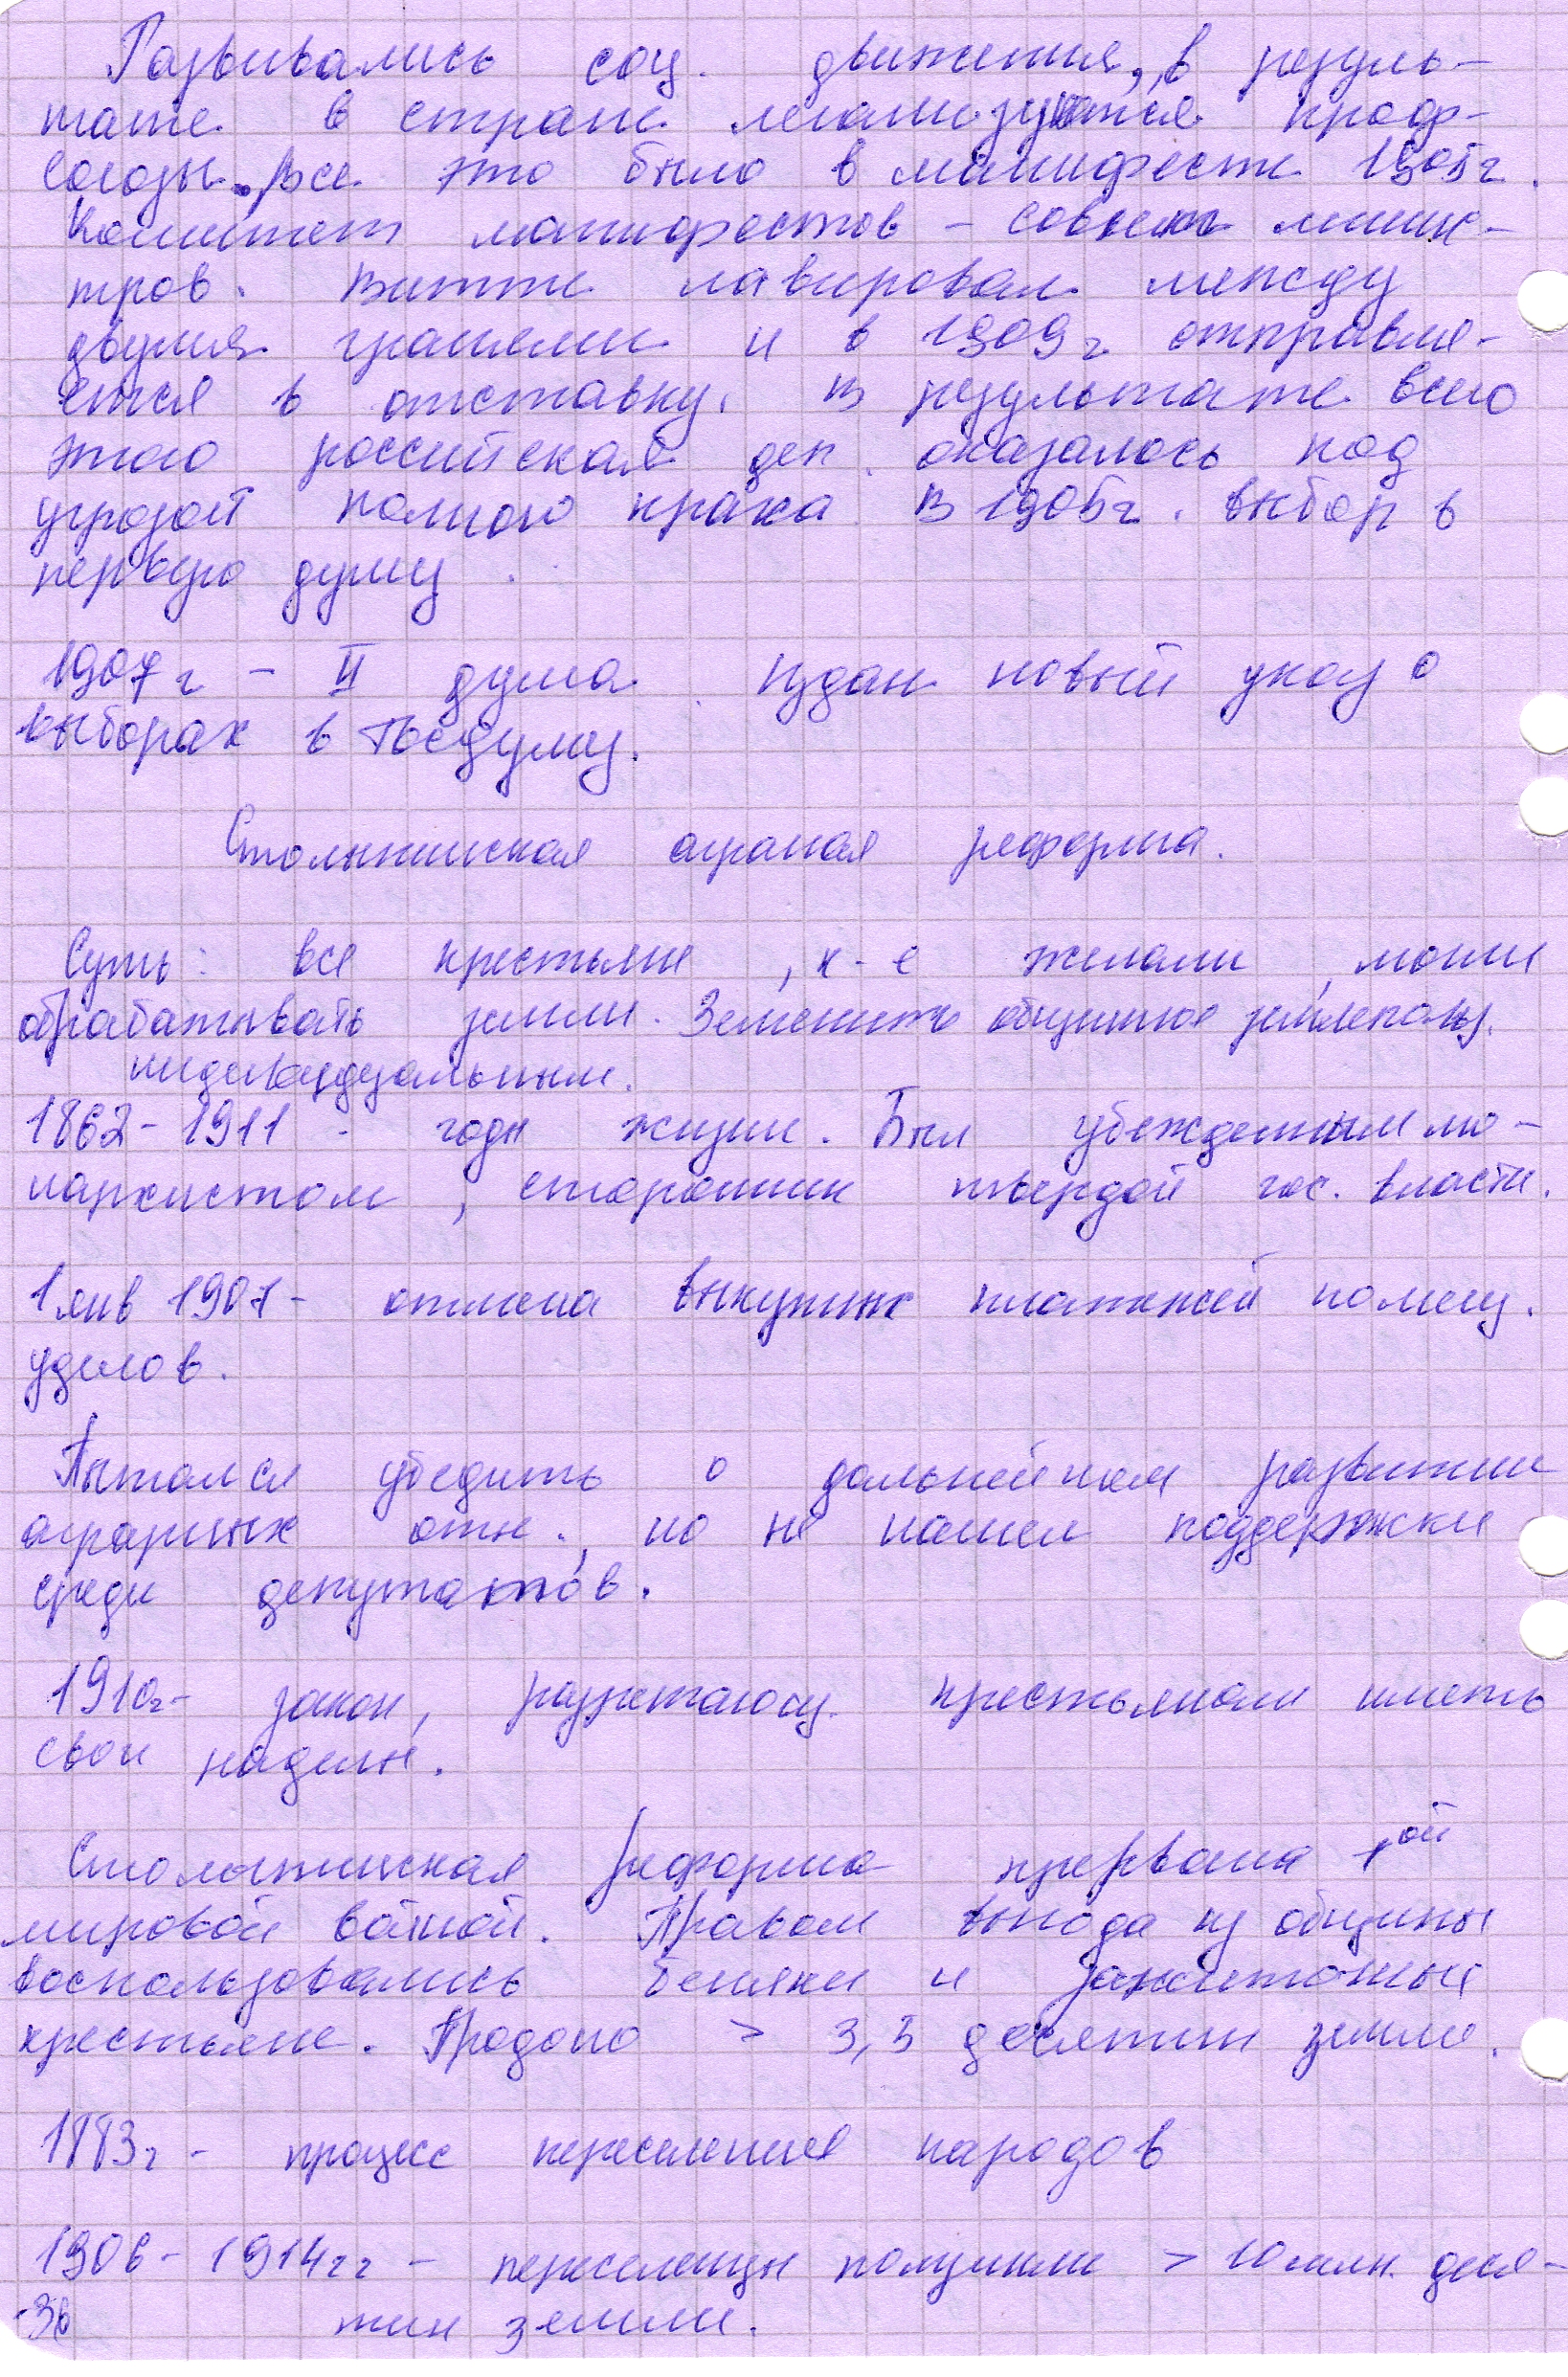 Развивались соц. движения, в резуль-
тате в стране легализуются проф-
союзы. Все это было в манифесте 1905г.
Комитет манифестов – совет минис-
тров. Витте лавировал между
двумя гранями и в 1909г отправля-
ется в отставку. В результате всего
этого российская деп. оказалось под
угрозой полного краха. В 1905г. выбор в
первую думу.
1907г – II дума. Издан новый указ о
выборах в Госдуму.
Столыпинская аграная реформа.
Суть: все крестьяне, к-е желали, могли
обрабатывать земли. Земенить общинное землепольз.
индивидуальным.
1862-1911 - годы жизни. Был убежденным мо-
нархистом, сторонник твердой гос. власти.
1 янв 1907- отмена выкупных платежей помещ.
уделов.
Пытался убедить о дальнейшем развитии
аграрных отн., но не нашел поддержки
среди депутатов.
1910г- закон, разрешающ. крестьянам иметь
свои наделы.
Столыпинская реформа прервана 1ой
мировой войной. Правом выхода из общины
воспользовались бедняки и зажиточные
крестьяне. Продано > 3,3 десятин земле.
1883г - процесс переселения народов
1906-1914гг – переселенцы получили > 10 млн. деся-
-36 тин земли.